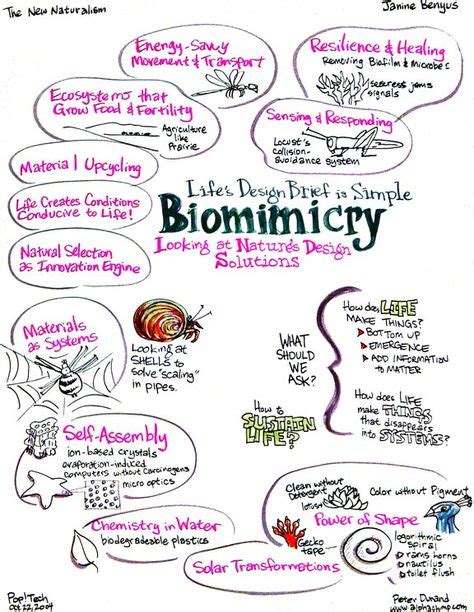 The New Naturalism
Janine Benyus
Energy-Savvy
Movement & Transport
Resilience & Healing
Removing Biofilm & Microbes
seacress jams
signals
Ecosystems that
Grow Food & Fertility
Agriculture
like
Prairie
Sensing & Responding
Locust's
collision-
avoidance system
Material Upcycling
Life Creates Conditions
Conducive to Life!
Natural Selection
as Innovation Engine
Life's Design Brief is Simple
Biomimicry
Looking at Nature's Design
Solutions
Materials
as Systems
Looking at
SHELLS to
solve "scaling"
in pipes.
WHAT
SHOULD
WE
ASK?
How does LIFE
MAKE THINGS?
BOTTOM UP
EMERGENCE
ADD INFORMATION
TO MATTER
How does LIFE
make THINGS
that disappears
into SYSTEMS?
How to
SUSTAIN
LIFE?
Self-Assembly
ion-based crystals
evaporation-induced
computers without carcinogens
micro optics
Chemistry in Water
biodegradable plastics
Solar Transformations
Clean without
Detergent
lotus
Color without Pigment
Power of Shape
Gecko
tape
logorithmic
spiral
rams horns
nautilus
toilet flush
Pop!Tech
Oct 22, 2004
Peter Durand
www.alphachimp.com